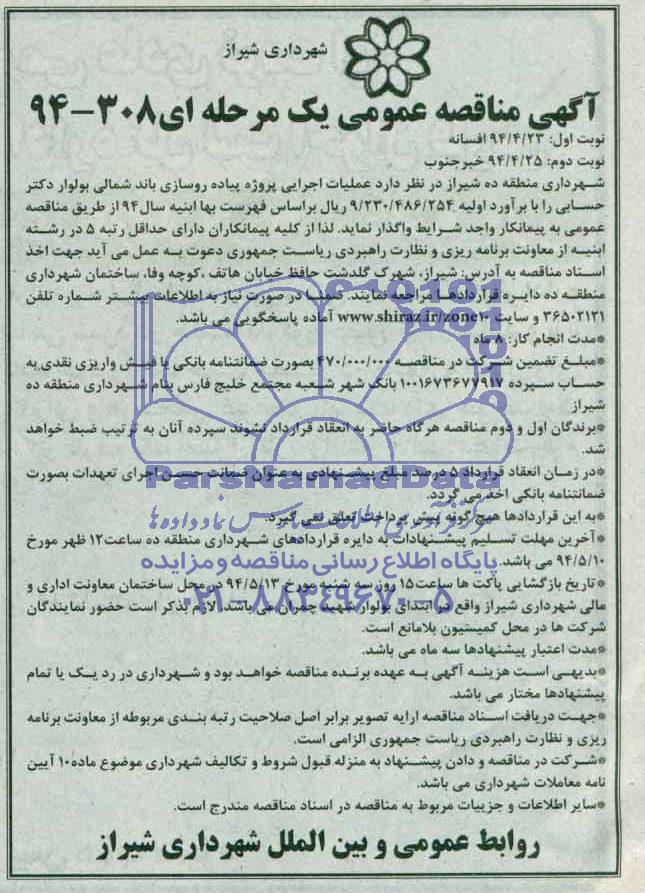 شهرداری شیراز
آگهی مناقصه عمومی یک مرحله ای ۳۰۸-۹۴
نوبت اول: ۹۴/۴/۲۳ افسانه
نوبت دوم: ۹۴/۴/۲۵ خبرجنوب
شهرداری منطقه ده شیراز در نظر دارد عملیات اجرایی پروژه پیاده روسازی باند شمالی بولوار دکتر
حسابی را با برآورد اولیه ۹/۲۳۰/۴۸۶/۲۵۴ ریال براساس فهرست بها ابنیه سال ۹۴ از طریق مناقصه
عمومی به پیمانکار واجد شرایط واگذار نماید. لذا از کلیه پیمانکاران دارای حداقل رتبه ۵ در رشته
ابنیه از معاونت برنامه ریزی و نظارت راهبردی ریاست جمهوری دعوت به عمل می آید جهت اخذ
اسناد مناقصه به آدرس: شیراز، شهرک گلدشت حافظ خیابان هاتف ،کوچه وفا، ساختمان شهرداری
منطقه ده دایره قراردادها مراجعه نمایند. ضمنا در صورت نیاز به اطلاعات بیشتر شماره تلفن
۳۶۵۰۲۱۲۱ و سایت www.shiraz.ir/zone۱۰ آماده پاسخگویی می باشد.
*مدت انجام کار: ۸ ماه
*مبلغ تضمین شرکت در مناقصه ۴۷۰/۰۰۰/۰۰۰ بصورت ضمانتنامه بانکی یا فیش واریزی نقدی به
حساب سپرده ۱۰۰۱۶۷۳۶۷۷۹۱۷ بانک شهر شعبه مجتمع خلیج فارس بنام شهرداری منطقه ده
شیراز
*برندگان اول و دوم مناقصه هرگاه حاضر به انعقاد قرارداد نشوند سپرده آنان به ترتیب ضبط خواهد
شد.
*در زمان انعقاد قرارداد ۵ درصد مبلغ پیشنهادی به عنوان ضمانت حسن اجرای تعهدات بصورت
ضمانتنامه بانکی اخذ می گردد.
*به این قراردادها هیچ گونه پیش پرداخت تعلق نمی گیرد.
*آخرین مهلت تسلیم پیشنهادات به دایره قراردادهای شهرداری منطقه ده ساعت ۱۲ ظهر مورخ
۹۴/۵/۱۰ می باشد.
پایگاه اطلاع رسانی مناقصه و مزایده
*تاریخ بازگشایی پاکت ها ساعت ۱۵ روز سه شنبه مورخ ۹۴/۵/۱۳ در محل ساختمان معاونت اداری و
مالی شهرداری شیراز واقع در ابتدای بولوار شهید چمران می باشد. لازم بذکر است حضور نمایندگان
۰۲۱-۸۸۳۴۹۶۷۰-۵
شرکت ها در محل کمیسیون بلامانع است.
*مدت اعتبار پیشنهادها سه ماه می باشد.
*بدیهی است هزینه آگهی به عهده برنده مناقصه خواهد بود و شهرداری در رد یک یا تمام
پیشنهادها مختار می باشد.
*جهت دریافت اسناد مناقصه ارایه تصویر برابر اصل صلاحیت رتبه بندی مربوطه از معاونت برنامه
ریزی و نظارت راهبردی ریاست جمهوری الزامی است.
*شرکت در مناقصه و دادن پیشنهاد به منزله قبول شروط و تکالیف شهرداری موضوع ماده ۱۰ آیین
نامه معاملات شهرداری می باشد.
*سایر اطلاعات و جزییات مربوط به مناقصه در اسناد مناقصه مندرج است.
روابط عمومی و بین الملل شهرداری شیراز
ParsNamadData